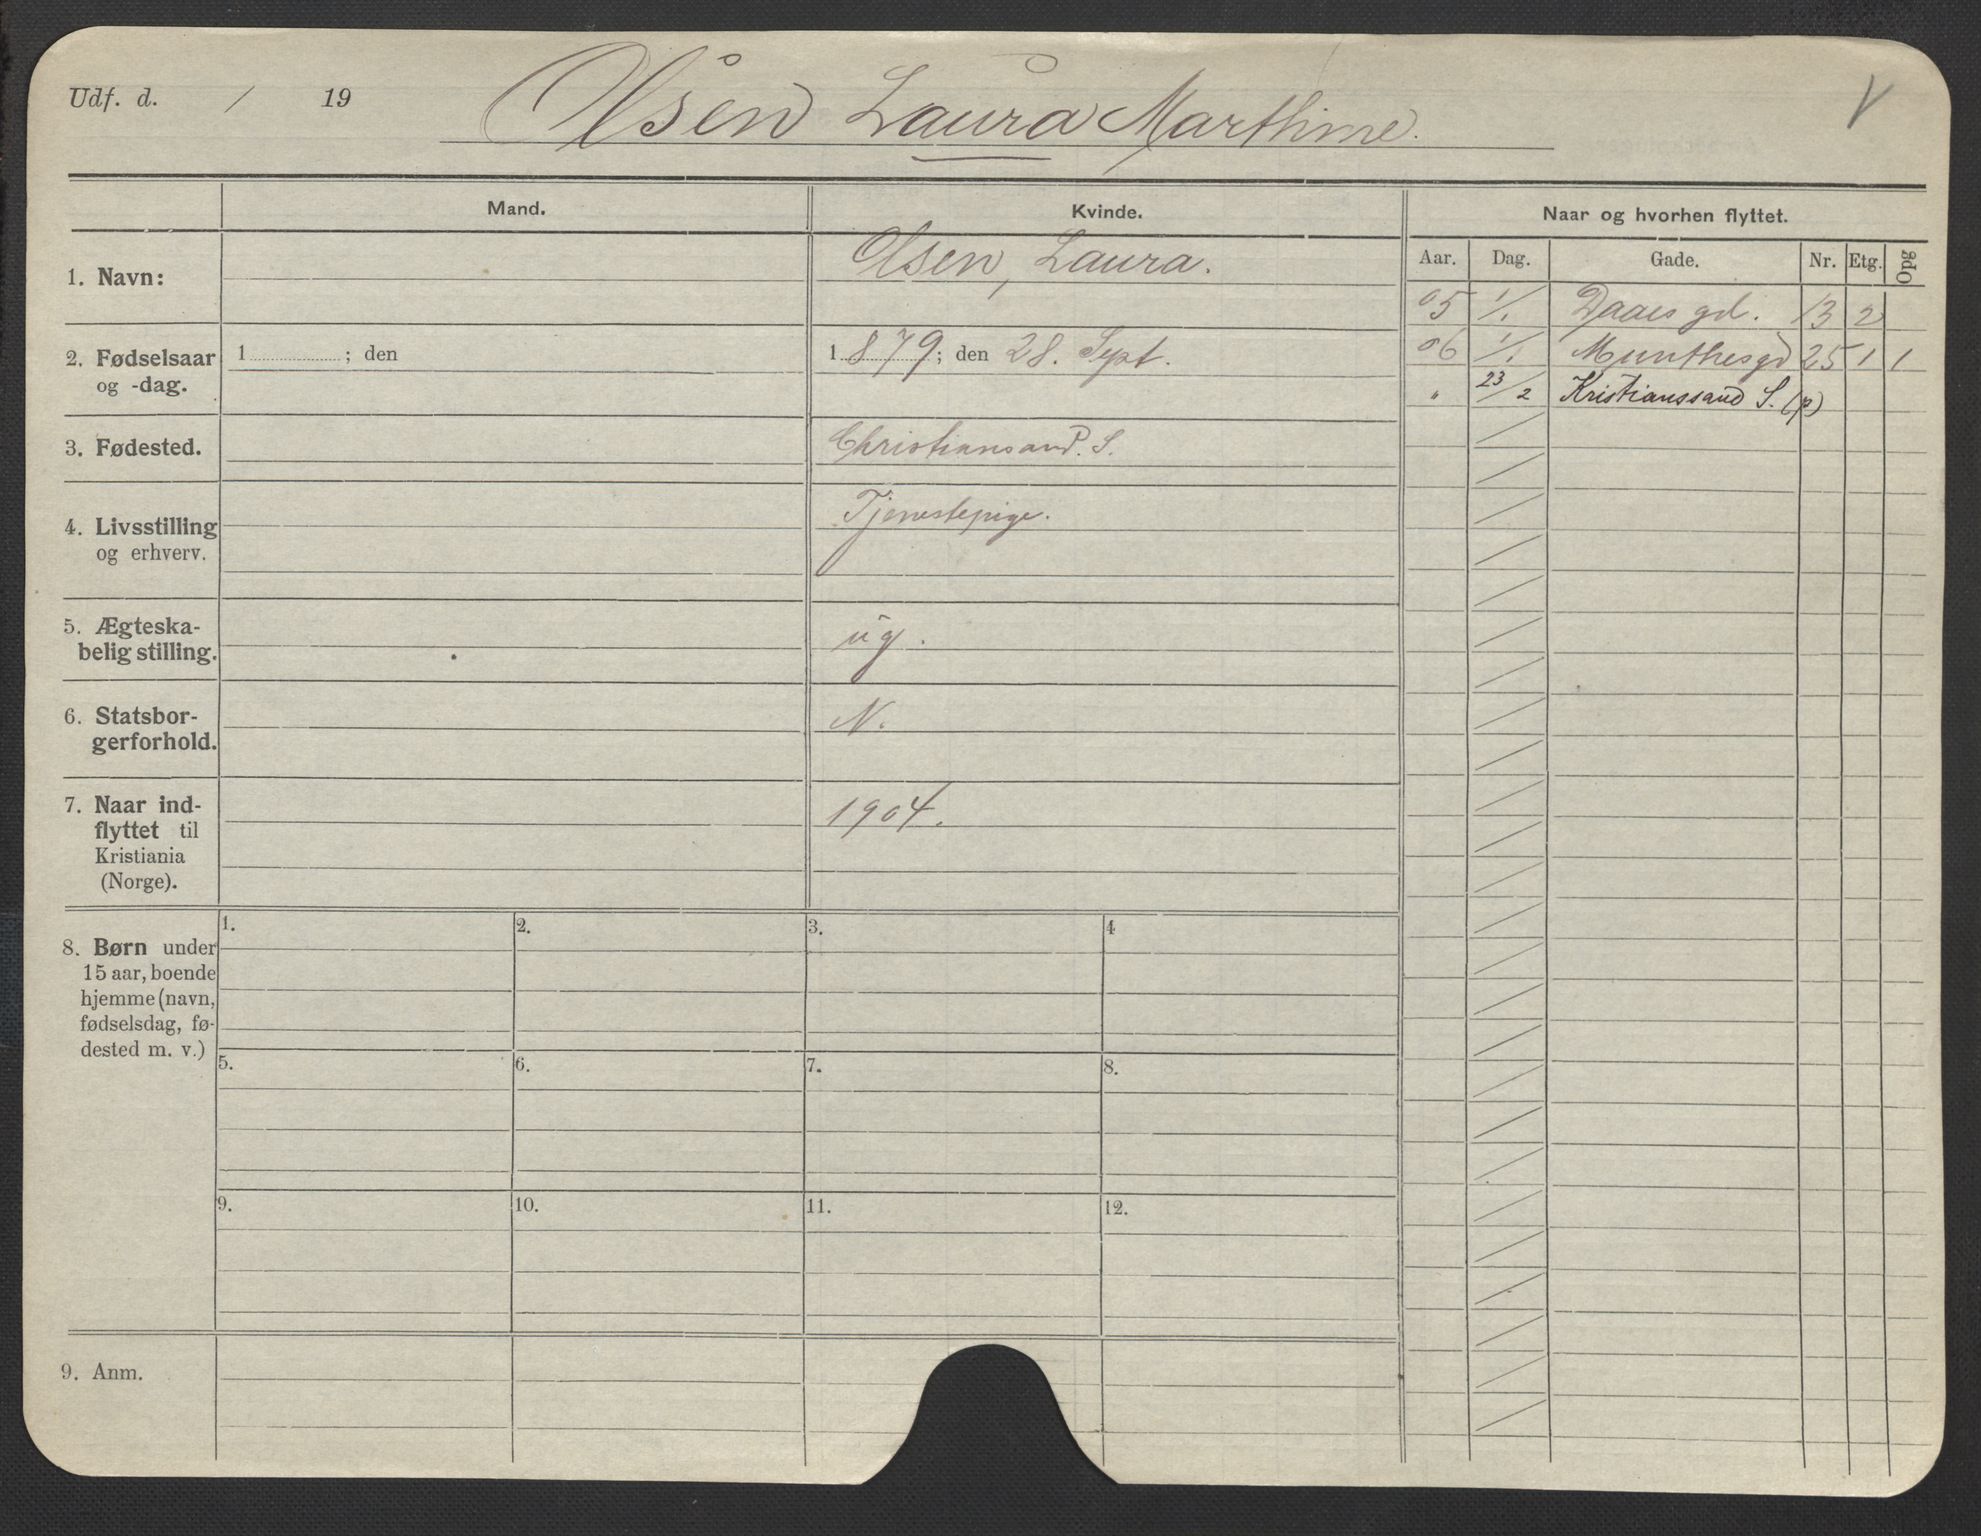 Udf. d. / 19
Olsen Laura Marthine.
V
Mand.
Kvinde.
Naar og hvorhen flyttet.
Aar. Dag. Gade. Nr. Etg. Opg
1. Navn:
Olsen, Laura.
05 1/1 Daaes gd. 13 2
2. Fødselsaar
og -dag.
1 ; den
1879; den 28. Sept.
06 1/1 Munthesgd 25 1 1
" 23/2 Kristianssand S. (p)
3. Fødested.
Christiansand. S.
4. Livsstilling
og erhverv.
Tjenestepige.
5. Ægteska-
belig stilling.
ug.
6. Statsbor-
gerforhold.
N.
7. Naar ind-
flyttet til
Kristiania
(Norge).
1904.
8. Børn under
15 aar, boende
hjemme (navn,
fødselsdag, fø-
dested m. v.)
1. 2. 3. 4
5. 6. 7. 8.
9. 10. 11. 12.
9. Anm.